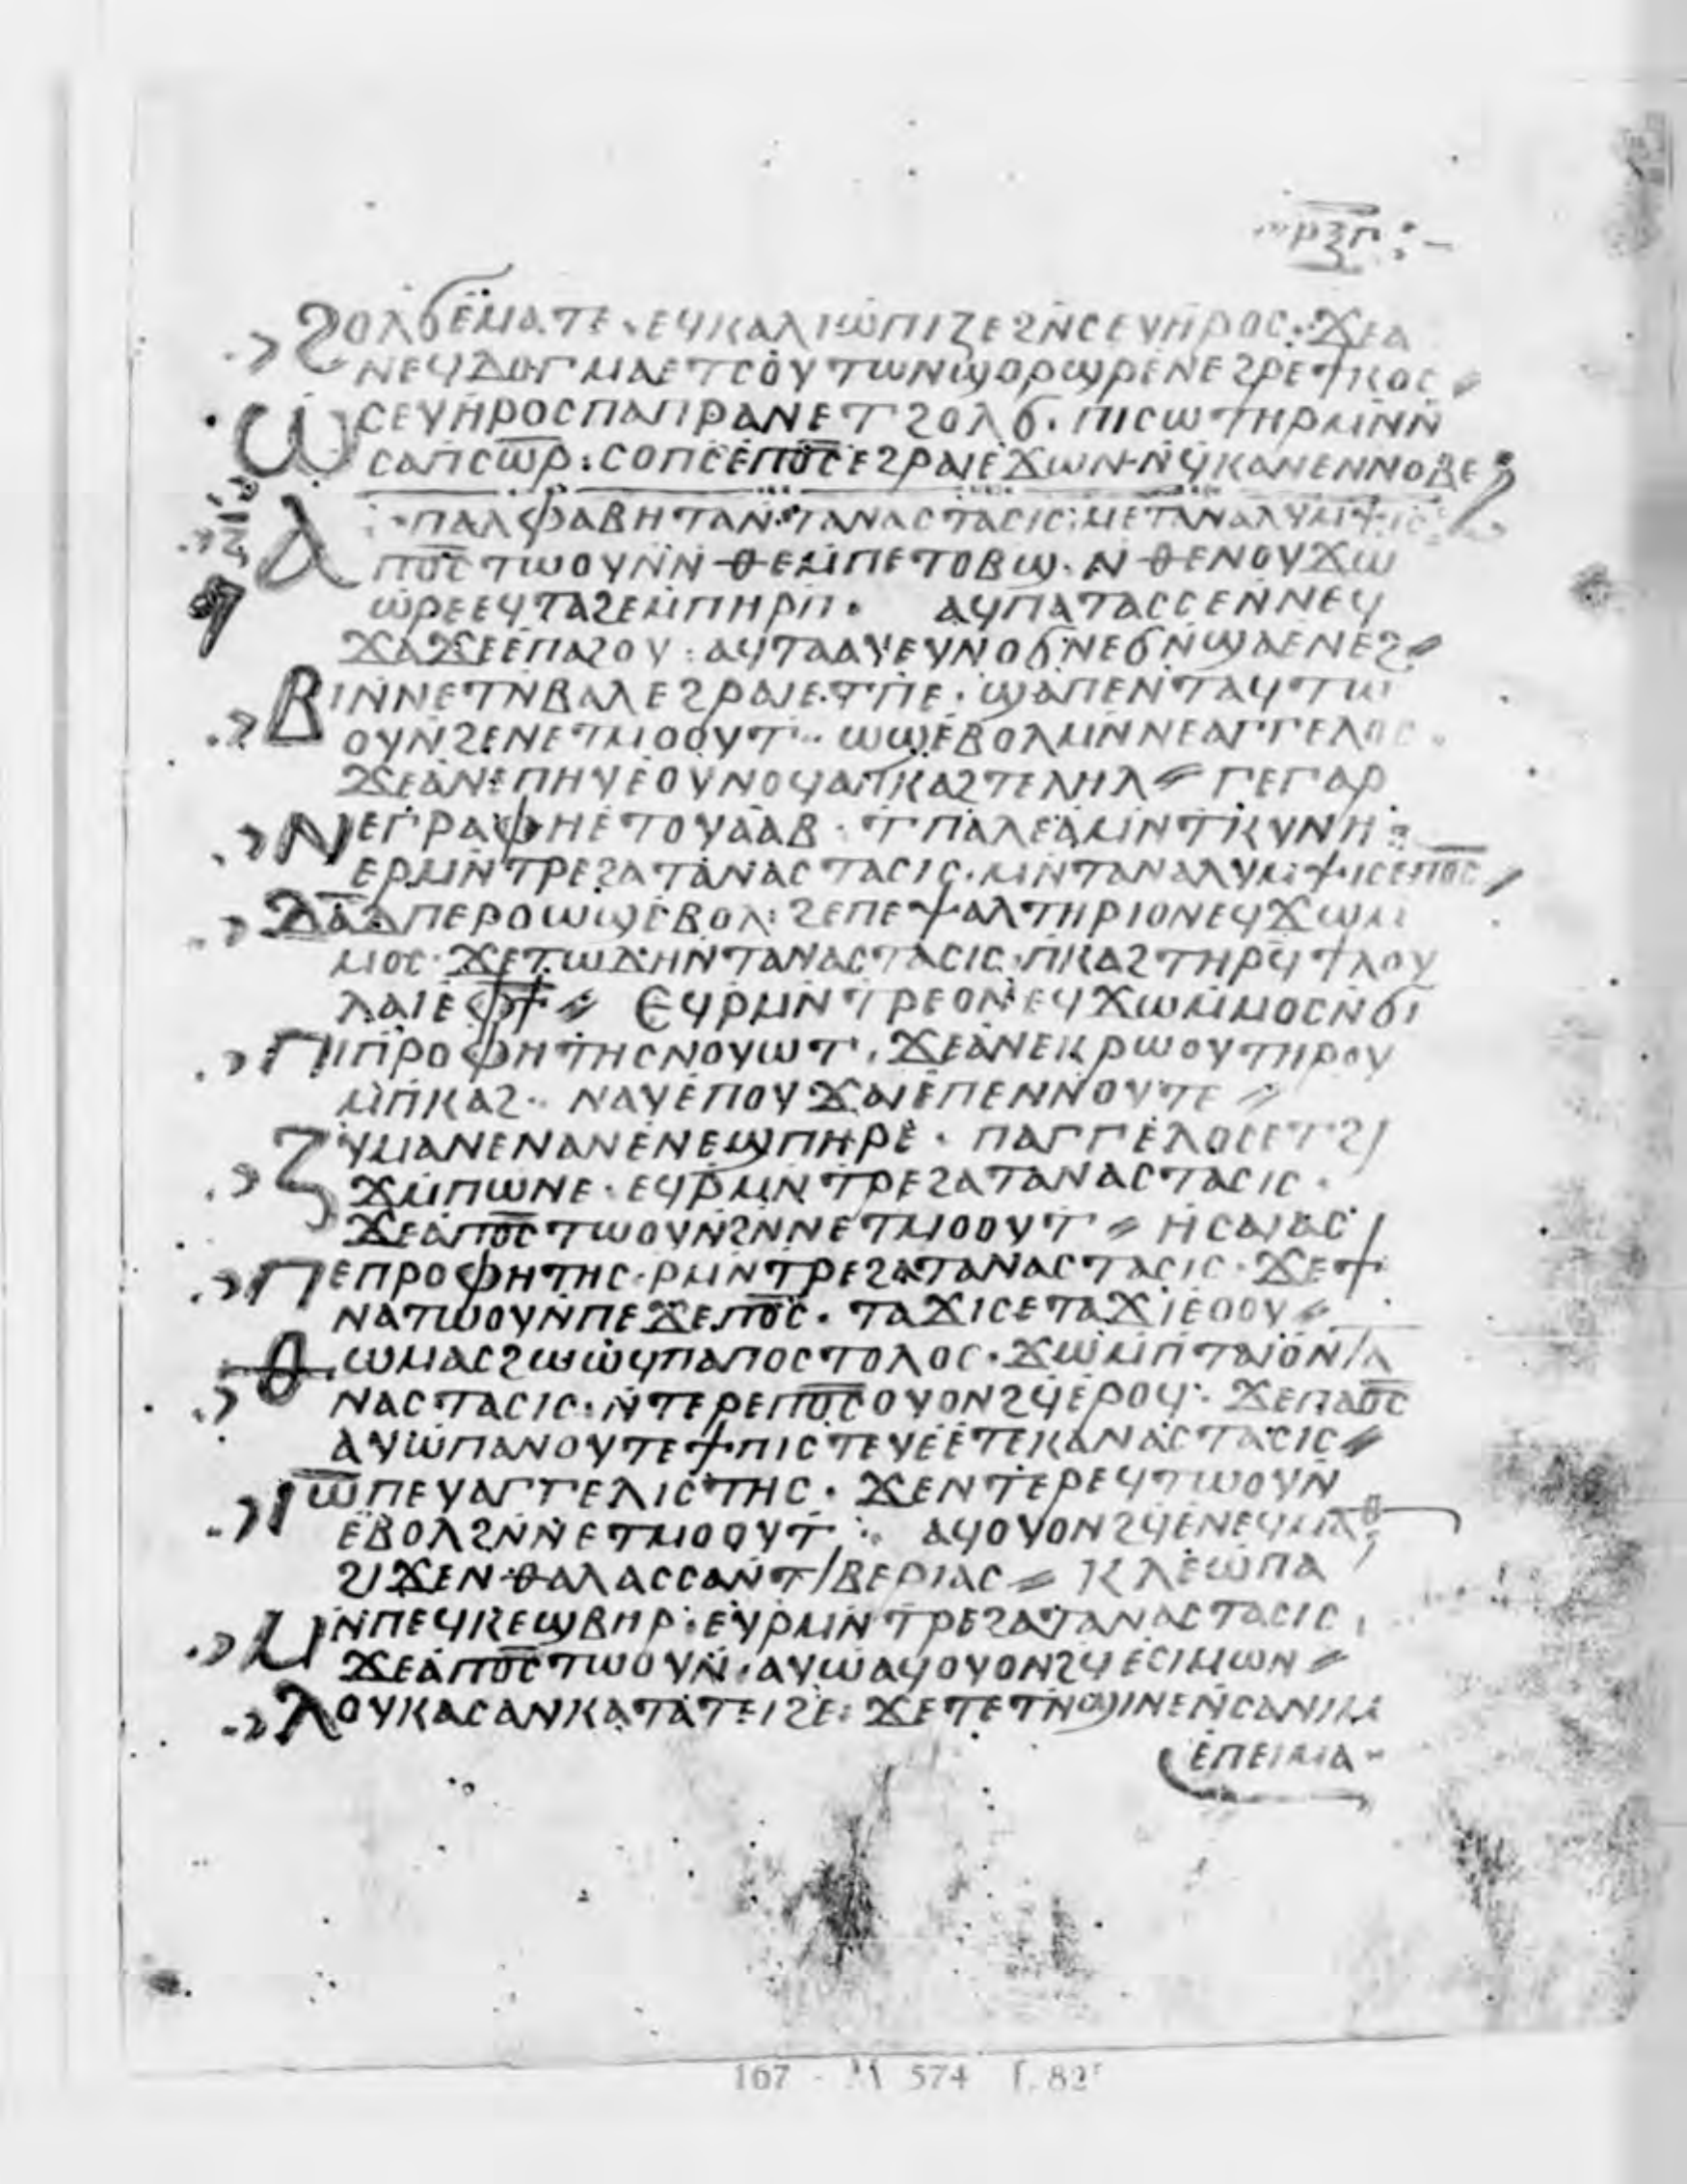 ⲣⲝⲅ
ϩⲟⲗϭⲉⲙⲁⲧⲉ· ⲉϥⲕⲁⲗⲓⲱⲡⲓⲍⲉϩⲛⲥⲉⲩⲏⲣⲟⲥ: ϫⲉⲁ
ⲛⲉϥⲇⲟⲅⲙⲁⲉⲧⲥⲟⲩⲧⲱⲛϣⲟⲣϣⲣⲉⲛⲉϩⲣⲉϯⲕⲟⲥ
ⲱⲥⲉⲩⲏⲣⲟⲥⲡⲁⲡⲣⲁⲛⲉⲧϩⲟⲗϭ· ⲡⲓⲥⲱⲧⲏⲣⲙⲛⲛ
ⲥⲁⲡⲥⲱ̅ⲣ̅: ⲥⲟⲡⲥⲉⲡⲟ̅ⲥ̅ⲉϩⲣⲁⲓⲉϫⲱⲛⲛϥⲕⲁⲛⲉⲛⲛⲟⲃⲉ
ⲡⲁⲗⲫⲁⲃⲏⲧⲁⲛⲧⲁⲛⲁⲥⲧⲁⲥⲓⲥ: ⲙⲉⲧⲁⲛⲁⲗⲩⲙϯⲓⲥ
ⲁⲡⲟ̅ⲥ̅ⲧⲱⲟⲩⲛⲛⲑⲉⲙⲡⲉⲧⲟⲃϣ· ⲛⲑⲉⲛⲟⲩϫⲱ
ⲱⲣⲉⲉϥⲧⲁϩⲉⲙⲡⲏⲣⲡ· ⲁϥⲡⲁⲧⲁⲥⲥⲉⲛⲛⲉϥ
ϫⲁϫⲉⲉⲡⲁϩⲟⲩ: ⲁϥⲧⲁⲁⲩⲉⲩⲛⲟϭⲛⲉϭⲛϣⲁⲉⲛⲉϩ
ϥⲓⲛⲛⲉⲧⲛⲃⲁⲗⲉϩⲣⲁⲓⲉⲧⲡⲉ· ϣⲁⲡⲉⲛⲧⲁϥⲧⲱ
ⲟⲩⲛϩⲉⲛⲉⲧⲙⲟⲟⲩⲧ· ⲱϣⲉⲃⲟⲗⲙⲛⲛⲉⲁⲅⲅⲉⲗⲟⲥ
ϫⲉⲁⲛⲉⲡⲏⲩⲉⲟⲩⲛⲟϥⲁⲡⲕⲁϩⲧⲉⲗⲏⲗ ⲅⲉⲅⲁⲣ
ⲛⲉⲅⲣⲁⲫⲏⲉⲧⲟⲩⲁⲁⲃ· ⲧⲡⲁⲗⲉⲁⲙⲛⲧⲕⲩⲛⲏ
ⲉⲣⲙⲛⲧⲣⲉϩⲁⲧⲁⲛⲁⲥⲧⲁⲥⲓⲥ· ⲙⲛⲧⲁⲛⲁⲗⲩⲙϯⲓⲥⲉⲡⲟ̅ⲥ̅
ⲇⲁ̅ⲇ̅ⲡⲉⲣⲟⲱϣⲉⲃⲟⲗ: ϩⲉⲡⲉϯⲁⲗⲧⲏⲣⲓⲟⲛⲉϥϫⲱⲙ
ⲙⲟⲥ· ϫⲉⲧⲱⲇⲏⲛⲧⲁⲛⲁⲥⲧⲁⲥⲓⲥ· ⲡⲕⲁϩⲧⲏⲣϥϯⲗⲟⲩ
ⲗⲁⲓⲉⲫ̅ϯ̅ ⲉϥⲣⲙⲛⲧⲣⲉⲟⲛⲉϥϫⲱⲙⲙⲟⲥⲛϭⲓ
ⲡⲓⲡⲣⲟⲫⲏⲧⲏⲥⲛⲟⲩⲱⲧ· ϫⲉⲁⲛⲉⲕⲣⲱⲟⲩⲧⲏⲣⲟⲩ
ⲙⲡⲕⲁϩ· ⲛⲁⲩⲉⲡⲟⲩϫⲁⲓⲉⲡⲉⲛⲛⲟⲩⲧⲉ
ⲍⲩⲙⲁⲛⲉⲛⲁⲛⲉⲛⲉϣⲡⲏⲣⲉ· ⲡⲁⲅⲅⲉⲗⲟⲥⲉⲧϩⲓ
ϫⲙⲡⲱⲛⲉ· ⲉϥⲣⲙⲛⲧⲣⲉϩⲁⲧⲁⲛⲁⲥⲧⲁⲥⲓⲥ·
ϫⲉⲁⲡⲟ̅ⲥ̅ⲧⲱⲟⲩⲛϩⲛⲛⲉⲧⲙⲟⲟⲩⲧ ⲏⲥⲁⲓⲁⲥ
ⲡⲉⲡⲣⲟⲫⲏⲧⲏⲥ· ⲣⲙⲛⲧⲣⲉϩⲁⲧⲁⲛⲁⲥⲧⲁⲥⲓⲥ· ϫⲉϯ
ⲛⲁⲧⲱⲟⲩⲛⲡⲉϫⲉⲡⲟ̅ⲥ̅· ⲧⲁϫⲓⲥⲉⲧⲁϫⲓⲉⲟⲟⲩ
ⲑⲱⲙⲁⲥϩⲱⲱϥⲡⲁⲡⲟⲥⲧⲟⲗⲟⲥ· ϫⲱⲙⲡⲧⲁⲓⲟⲛⲧⲁ
ⲛⲁⲥⲧⲁⲥⲓⲥ: ⲛⲧⲉⲣⲉⲡⲟ̅ⲥ̅ⲟⲩⲟⲛϩϥⲉⲣⲟϥ· ϫⲉⲡⲁⲟ̅ⲥ̅
ⲁⲩⲱⲡⲁⲛⲟⲩⲧⲉϯⲡⲓⲥⲧⲉⲩⲉⲉⲧⲉⲕⲁⲛⲁⲥⲧⲁⲥⲓⲥ
ⲓ̅ⲱ̅ⲡⲉⲩⲁⲅⲅⲉⲗⲓⲥⲧⲏⲥ· ϫⲉⲛⲧⲉⲣⲉϥⲧⲱⲟⲩⲛ
ⲉⲃⲟⲗϩⲛⲛⲉⲧⲙⲟⲟⲩⲧ: ⲁϥⲟⲩⲟⲛϩϥⲉⲛⲉϥⲙⲁⲑ
ϩⲓϫⲉⲛⲑⲁⲗⲁⲥⲥⲁⲛⲧⲓⲃⲉⲣⲓⲁⲥ ⲕⲗⲉⲱⲡⲁ
ⲙⲛⲡⲉϥⲕⲉϣⲃⲏⲣ: ⲉⲩⲣⲙⲛⲧⲣⲉϩⲁⲧⲁⲛⲁⲥⲧⲁⲥⲓⲥ
ϫⲉⲁⲡⲟ̅ⲥ̅ⲧⲱⲟⲩⲛ· ⲁⲩⲱⲁϥⲟⲩⲟⲛϩϥⲉⲥⲓⲙⲱⲛ
ⲗⲟⲩⲕⲁⲥⲁⲛⲕⲁⲧⲁⲧⲉⲓϩⲉ: ϫⲉⲧⲉⲧⲛϣⲓⲛⲉⲛⲥⲁⲛⲓⲙ
ⲉⲡⲉⲓⲙⲁ
167 - M 574 f. 82r